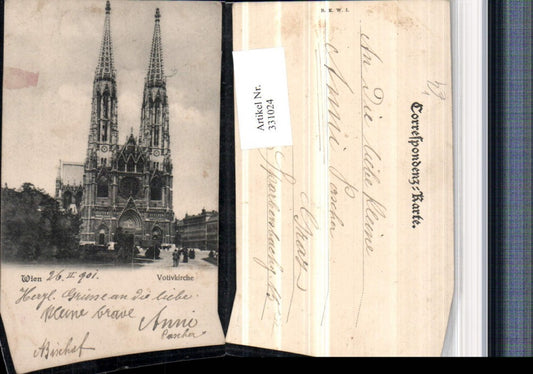 Wien
26. II. 901.
Votivkirche
Herzl. Grüsse an die liebe
kleine brave Annie
Pascher
Bischof
B. K. W. I.
Correspondenz-Karte.
An die liebe kleine
Annie Pascher
Graz
Artikel Nr.
331024